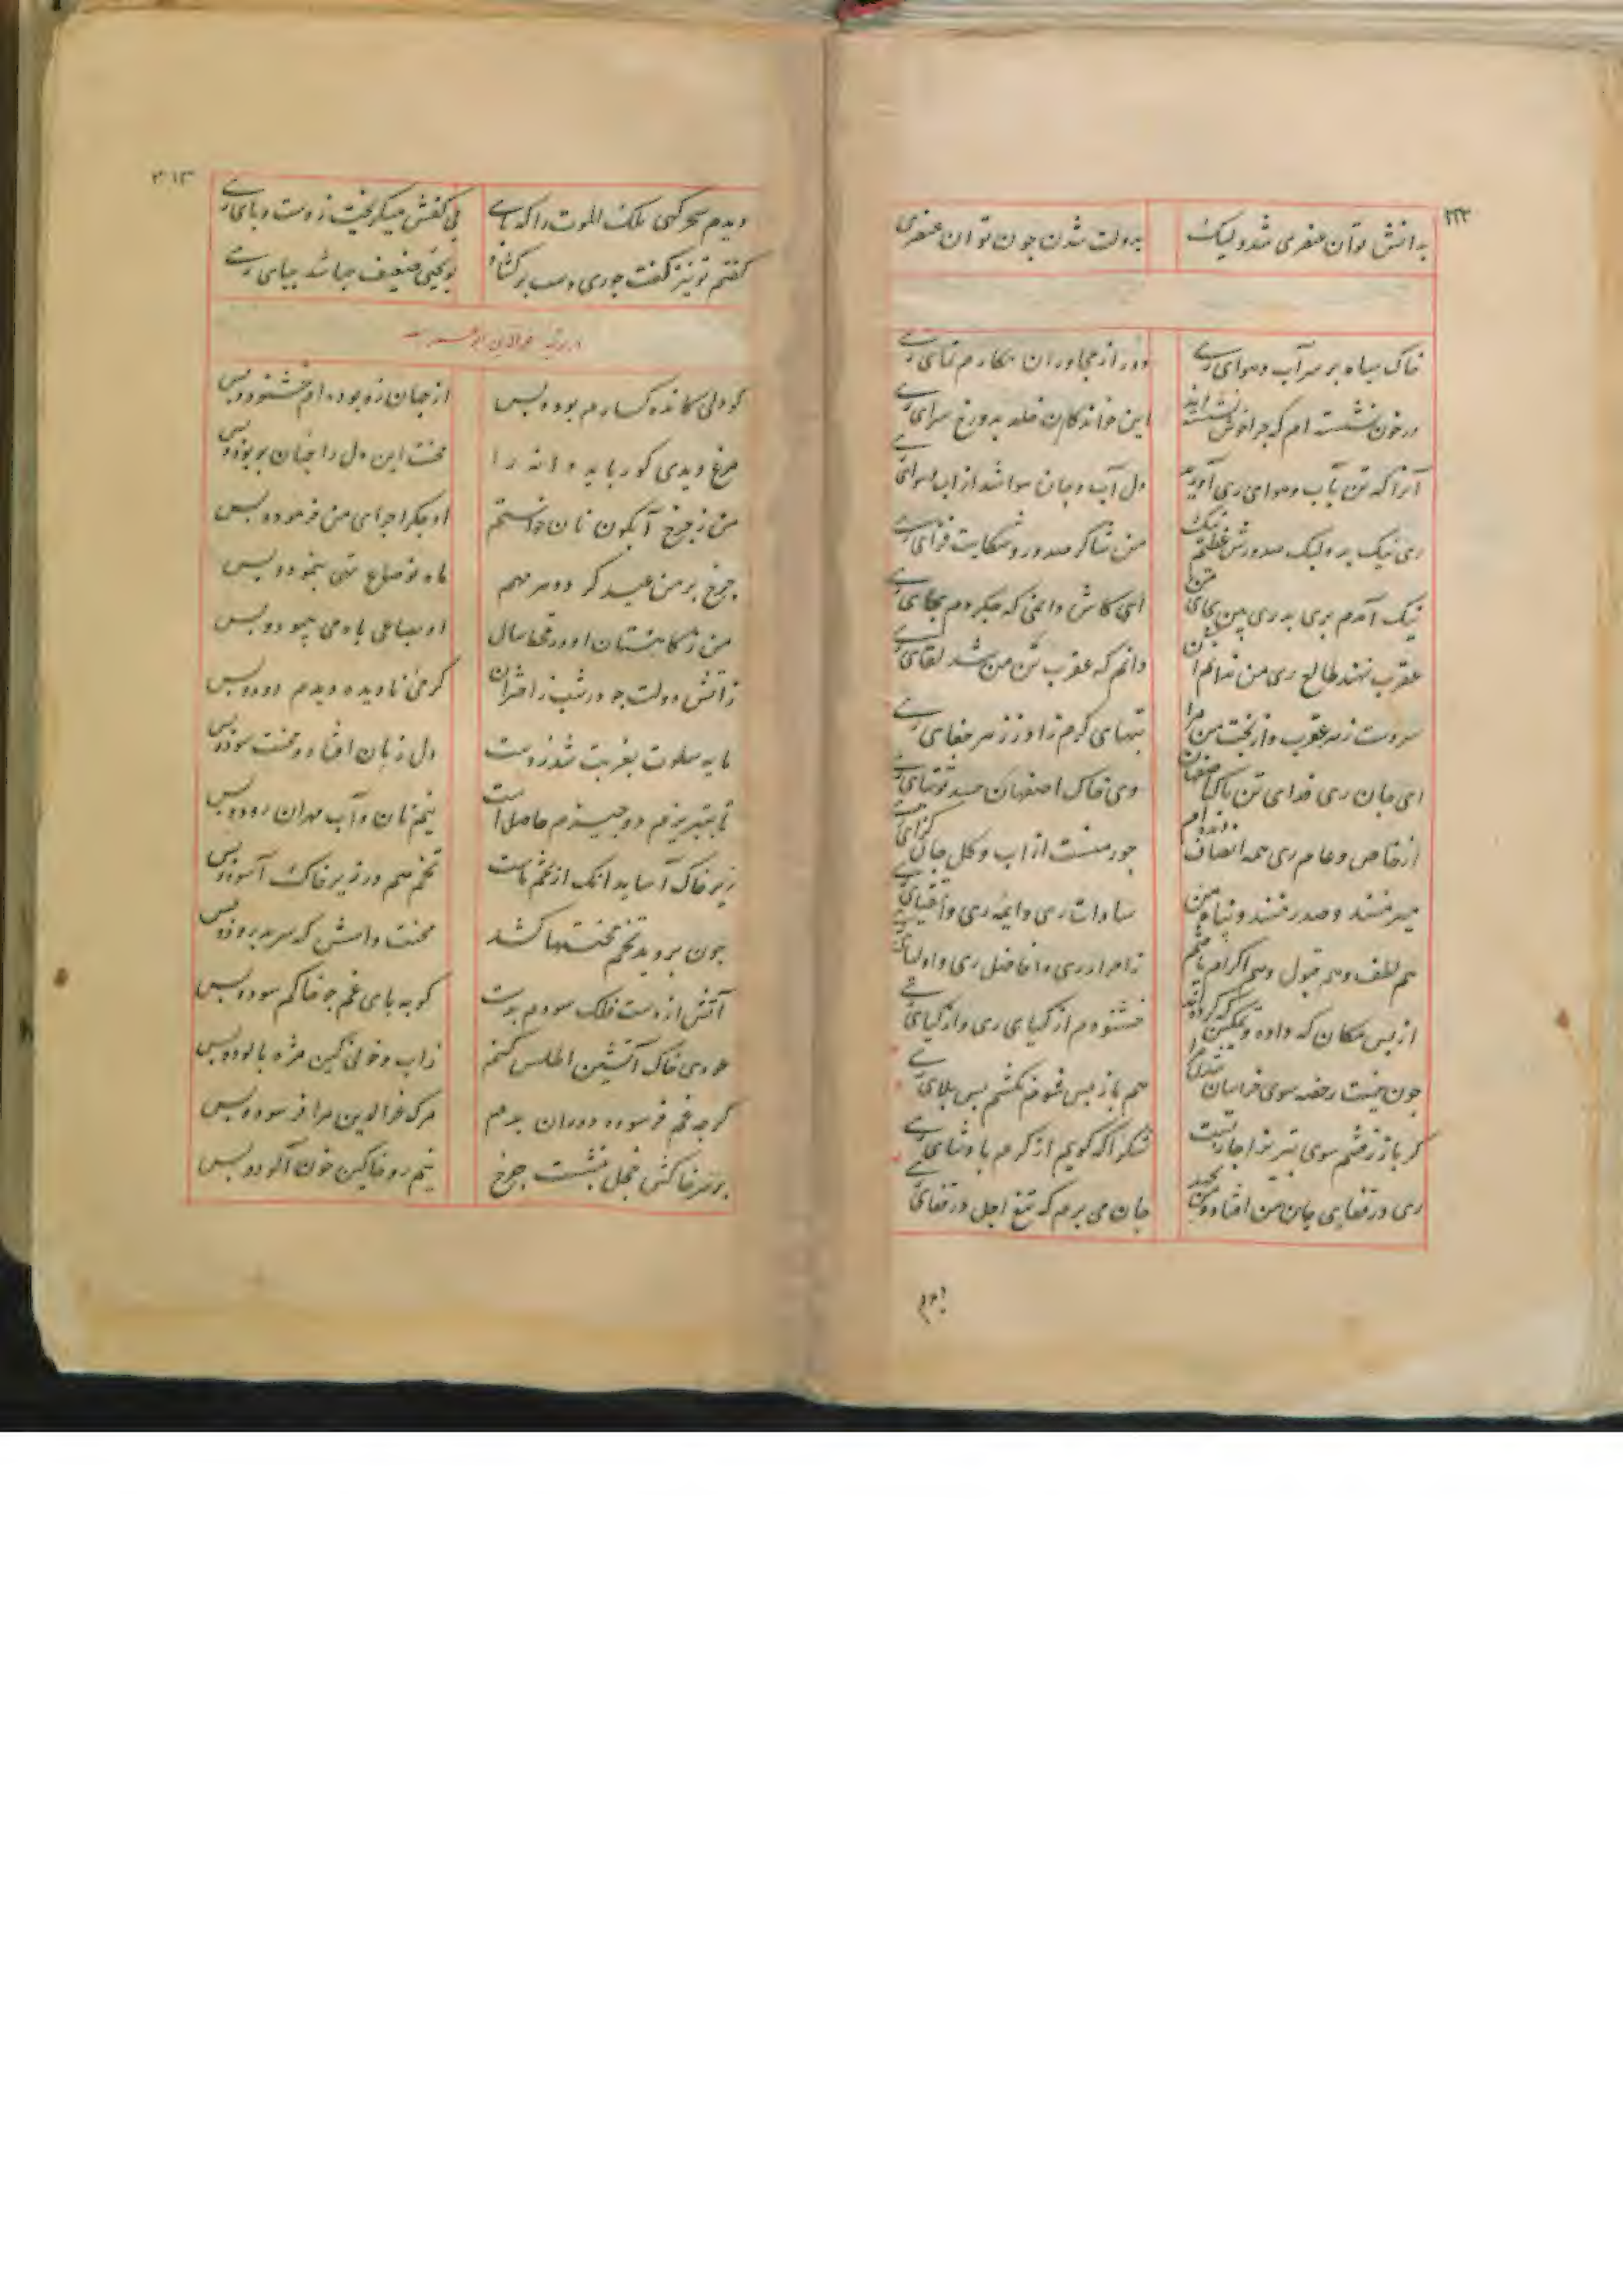 ۲۲۲
بدانش توان عنصری شد ولیک
بدولت شدن چون توان عنصری
خاک سیاه بر سر آب و هوای ری
دور از مجاوران مکارم نمای ری
در خون نشسته ام که چرا خوش نشسته اند
این خواندکان خلد بدوزخ سرای ری
آنرا که تن بآب و هوای ری آورند
دل آب و جان هوا شد از آب و هوای ری
ری نیک بد ولیک صدورش عظیم نیک
من شاکر صدور و شکایت فزای ری
نیک آمدم بری بد ری بین بجای من
ای کاش دانمی که چه کردم بجای ری
عقرب نهند طالع ری من ندانم این
دانم که عقرب تن من شد لقای ری
سردست زهر عقرب و از بخت من مرا
تبهای کرم زاد ز زهر جفای ری
ای جان ری فدای تن پاک اصفهان
وی خاک اصفهان حسد توتیای ری
از خاص و عام ری همه انصاف دیده ام
جور منست از آب و کل جان کزای ری
میر منند و صدر منند و پناه من
سادات ری و ایمه ری و اتقیای ری
هم لطف و هم قبول و هم اکرام یافتم
ز احرار ری و افاضل ری و اولیای ری
از بس مکان که داده و تمکین که کرده اند
خشنودم از کیای ری و از کیای ری
چون نیست رخصه سوی خراسان شدن مرا
هم باز پس شوم نکشم بس بلای ری
کر باز رفتنم سوی تبریز اجازتست
شکرا که کویم از کرم پادشای ری
ری در قفای جان من افتاد و من بجهد
جان می برم که تیغ اجل در قفای ری
دیدم
۲۱۳
دیدم سحرکهی ملک الموت را که پای
بی کفش میکریخت ز دست وبای ری
کفتم تو نیز کفت چو ری دست برکشاد
بویحیی ضعیف چه باشد بپای ری
کو دلی کانده کسارم بود و بس
از جهان زو بوده ام خشنود و بس
مرغ دیدی کو رباید دانه را
محنت این دل را چنان بربود و بس
من ز چرخ آبکون نان خواستم
او جکر اجرای من فرمود و بس
چرخ بر من عید کرد و هر مهم
ماه نو صاع تهی بنمود و بس
من زکاة استان او در قحط سال
او بصاعی باد می پیمود و بس
ز آتش دولت چو در شب ز اختران
کرمی نادیده دیدم دود و بس
مایه سلوت بغربت شد ز دست
دل زیان افتاد و محنت سود و بس
تا بتبریزم دو چیزم حاصل است
نیم نان و آب مهران رود و بس
زیر خاک آساید آنک از تخم ماست
تخم هم در زیر خاک آسود و بس
چون بروید تخم محنتها کشد
محنت داسش که سر بدرود و بس
آتش از دست فلک سودم بدست
کو به پای غم چو خاکم سود و بس
هر دمی خاک آتشین اطلس کنم
ز آب و خونی کین مژه پالود و بس
کرچه غم فرسوده دوران بدم
مرک فخرالدین مرا فرسود و بس
بر سر خاکش خجل بنشست چرخ
نیم رو خاکین خون آلود و بس